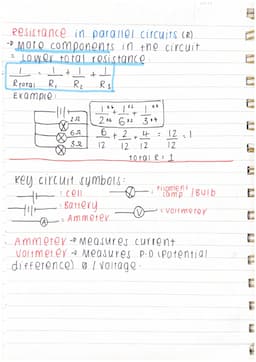 Resistance in parallel circuits (R)
→ More components in the circuit
= lower total resistance
1/Rtotal = 1/R1 + 1/R2 + 1/R3
Example:
1/2 + 1/6 + 1/3
2Ω
6Ω
3Ω
6/12 + 2/12 + 4/12 = 12/12 = 1
total R = 1
Key circuit symbols:
: cell
: filament lamp / Bulb
: Battery
: voltmeter
: Ammeter
Ammeter → Measures current
Voltmeter → Measures P.D (potential
difference) / voltage.